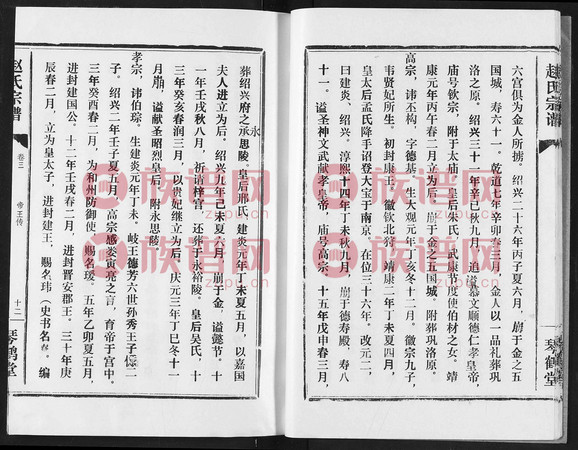 赵氏宗谱
琴鹤堂
六宫俱为金人所掳。绍兴二十六年丙子夏六月,崩于金之五
国城,寿六十一。乾道七年辛卯春三月,金人以一品礼葬巩
洛之原。绍兴三十一年辛巳秋九月,追谥恭文顺德仁孝皇帝,
庙号钦宗,附于太庙。皇后朱氏,武康节度使伯材之女。靖
康元年丙午春二月,立为后,崩于金之五国城,附葬巩洛原。
高宗,讳丕构,字德基。生大观元年丁亥冬十二月。徽宗九子,
韦贤妃所生。初封康王。徽钦北狩,靖康二年丁未夏四月,
皇太后孟氏降手诏登大宝于南京,在位三十六年。改元二,
曰建炎、绍兴。淳熙十四年丁未秋九月,崩于德寿殿,寿八
十一。谥圣神文武献孝皇帝,庙号高宗。十五年戊申春三月,
葬绍兴府之永思陵。皇后邢氏,建炎元年丁未夏五月,以嘉国
夫人进立为后。绍兴九年己未夏六月,崩于金,谥懿节。十
一年壬戌秋八月,祈请梓宫,还葬于永裕陵。皇后吴氏,十
三年癸亥春润三月,以贵妃继立为后,庆元三年丁巳冬十一
月崩,谥献圣昭烈皇后,附永思陵。
孝宗,讳伯琮,生建炎元年丁未。岐王德芳六世孙秀王子偁二
子。绍兴二年壬子夏五月,高宗感娄寅亮之言,育帝于宫中。
三年癸酉春二月,为和州防御使,赐名瑗。五年乙卯夏五月,
进封建国公。十二年壬戌春二月,进封晋安郡王。三十年庚
辰春二月,立为皇太子,进封建王,赐名玮(史书名眷。编
赵氏宗谱
卷三
帝王传
十二
琴鹤堂
族谱网
族谱网
族谱网